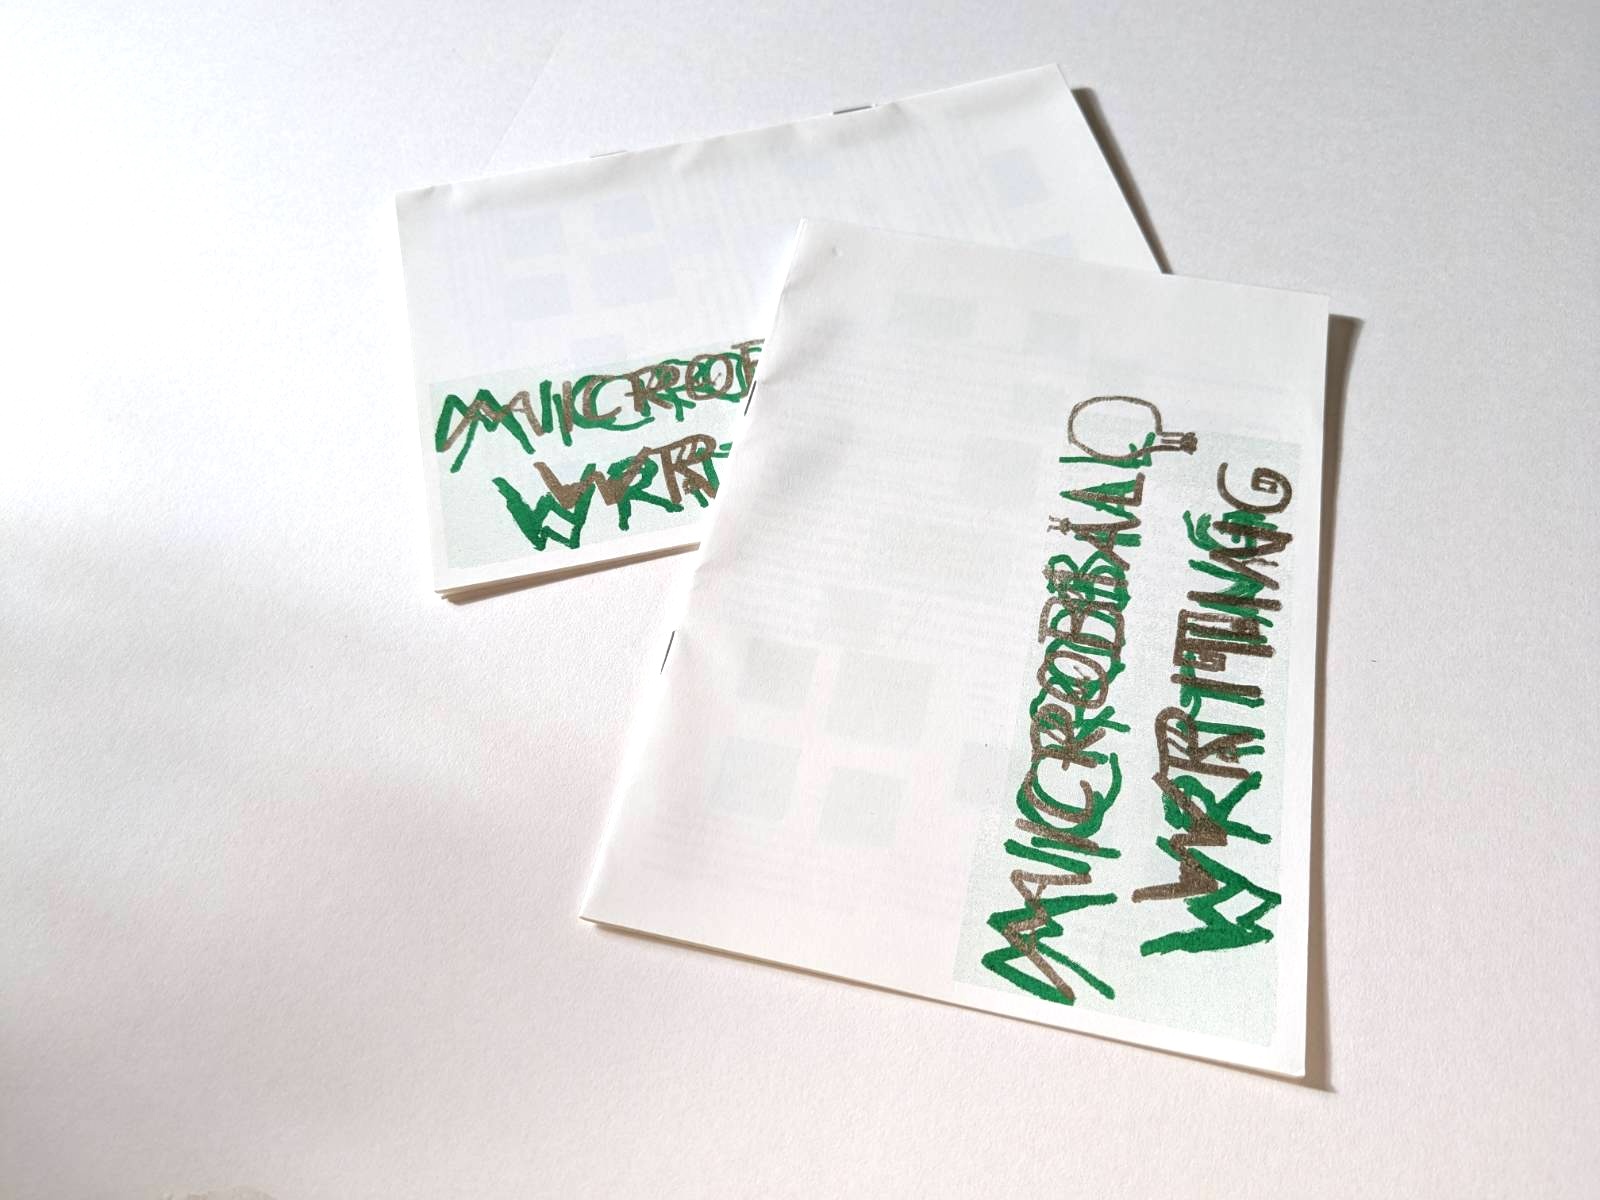 MICRO
WR
MICROBIAL
WRITING